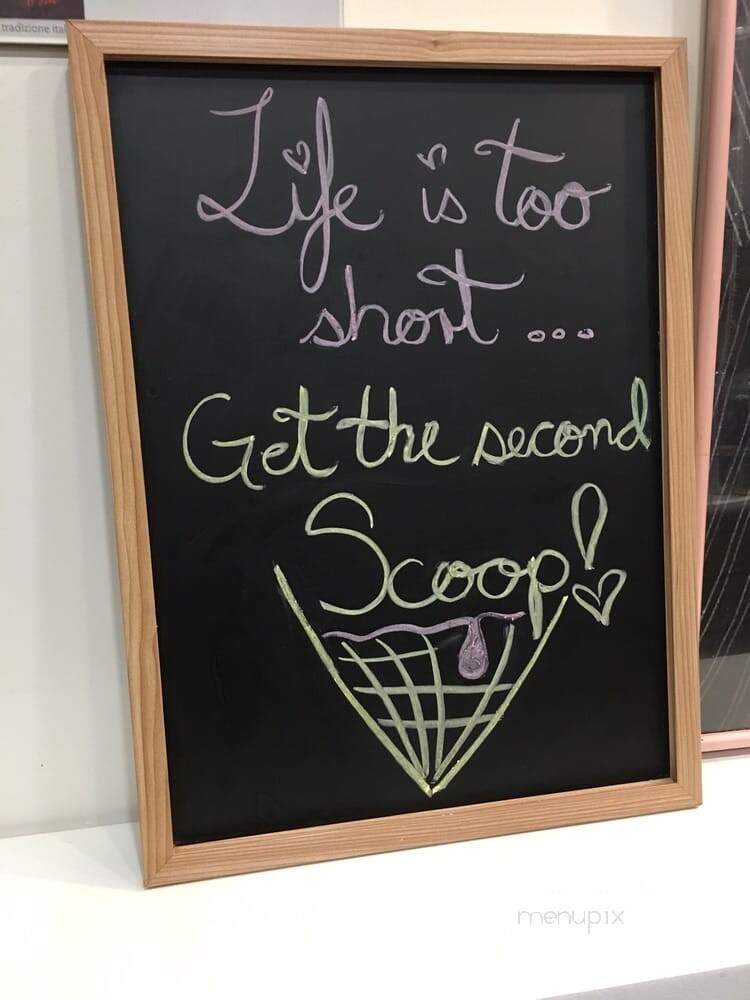 tradizione ita
Life is too
short ...
Get the second
Scoop!
menupix